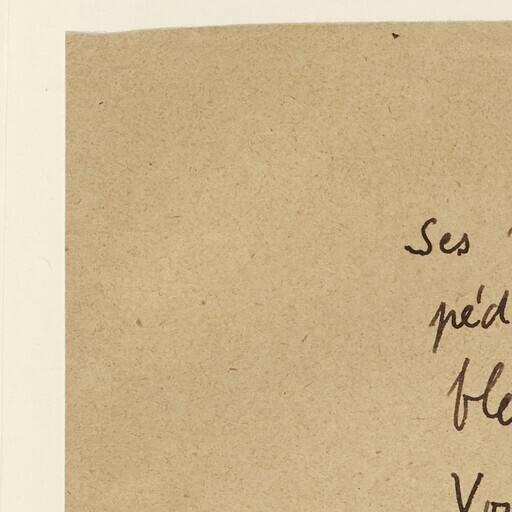 Ses
péd
ble
Vo